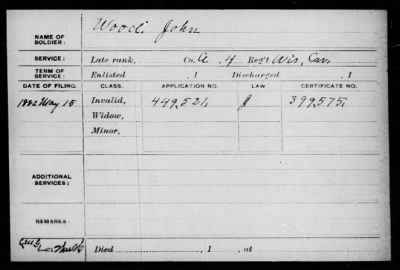 NAME OF SOLDIER: Wood, John
SERVICE: Late rank, Co. A, 4 Reg't Wis. Cav.
TERM OF SERVICE: Enlisted , 1 Discharged , 1
DATE OF FILING. CLASS. APPLICATION NO. LAW CERTIFICATE NO.
1882 May 15 Invalid, 449,521 J 399,575
Widow,
Minor,
ADDITIONAL SERVICES:
REMARKS:
Died , 1 , at